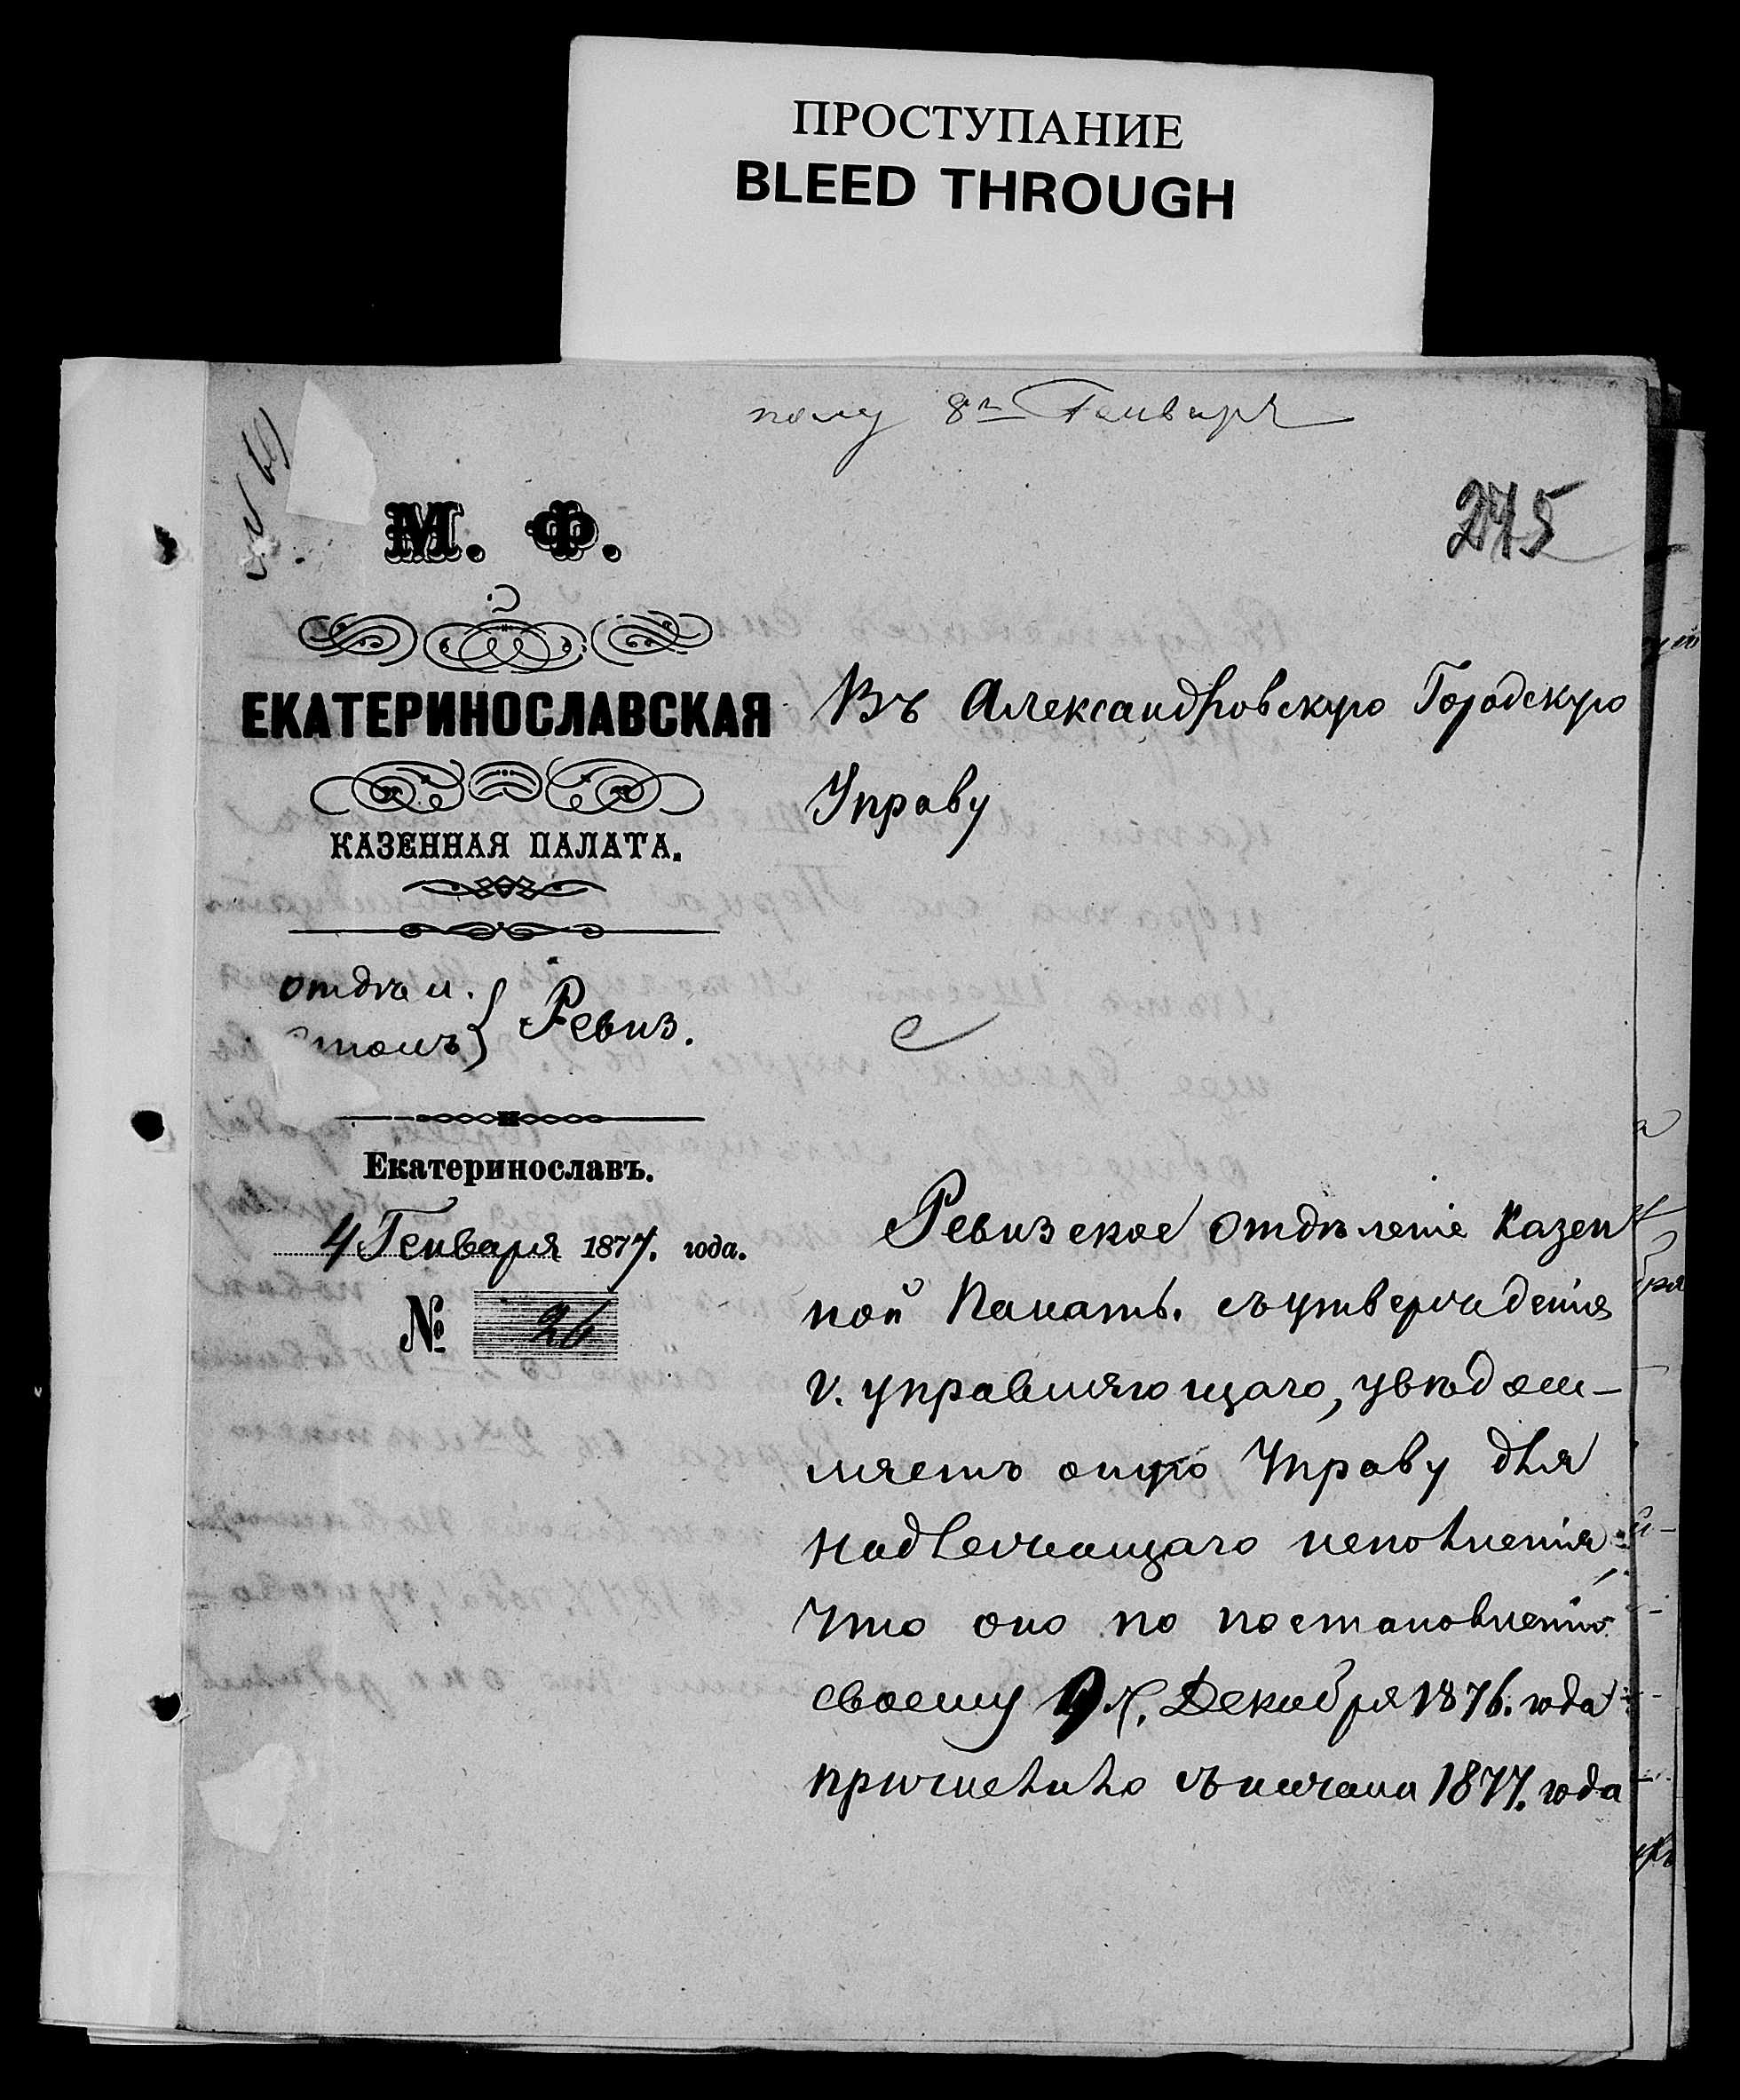 ПРОСТУПАНИЕ
BLEED THROUGH
полу 8го Генваря
275
М. Ф.
ЕКАТЕРИНОСЛАВСКАЯ
КАЗЕННАЯ ПАЛАТА.
Отдѣл.
столъ } Ревиз.
Екатеринославъ.
4 Генваря 1877. года.
№ 26
Въ Александровскую Городскую
Управу
Ревизское Отдѣленіе Казен
ной Палаты. съ утвержденія
г. управляющаго, увѣдом-
ляетъ оную Управу для
надлежащаго исполненія,
что оно по постановленію
своему 9 Декабря 1876. года
причислило съ начала 1877. года